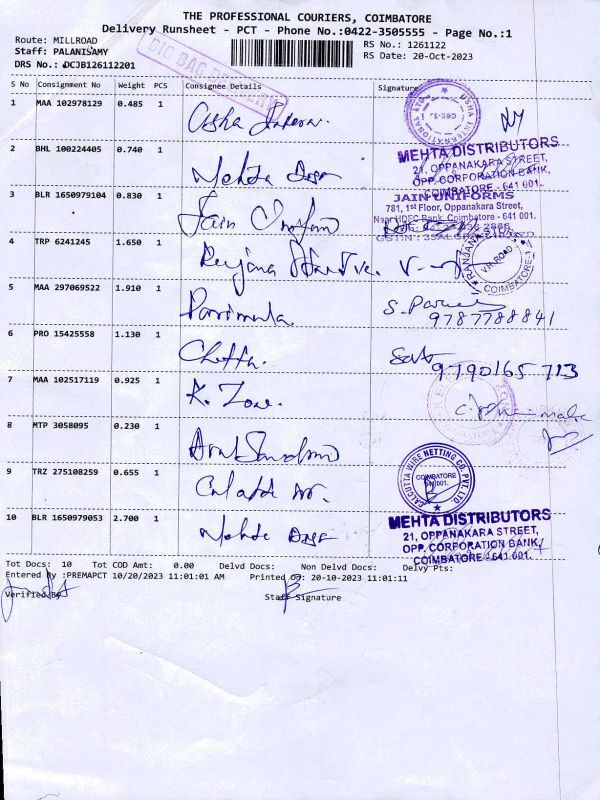 THE PROFESSIONAL COURIERS, COIMBATORE
Delivery Runsheet - PCT - Phone No.:0422-3505555 - Page No.:1
Route: MILLROAD
Staff: PALANISAMY
DRS No.: DCJB126112201
RS No.: 1261122
RS Date: 20-Oct-2023
BIG BAG
S No Consignment No Weight PCS Consignee Details Signature
1 MAA 102978129 0.485 1 Usha
USHA INTERNATIONAL LTD
2 BHL 100224405 0.740 1 Mehta
MEHTA DISTRIBUTORS
21, OPPANAKARA STREET,
OPP. CORPORATION BANK,
COIMBATORE - 641 001.
3 BLR 1650979104 0.830 1 Jain Uniform
JAIN UNIFORMS
781, 1st Floor, Oppanakara Street,
Near HDFC Bank, Coimbatore - 641 001.
4 TRP 6241245 1.650 1 Ranjana
RANJANA
V.H. ROAD
COIMBATORE-1
5 MAA 297069522 1.910 1 Parimala
9787788841
6 PRO 15425558 1.130 1
9790165713
7 MAA 102517119 0.925 1 K. Zone
8 MTP 3058095 0.230 1
9 TRZ 275108259 0.655 1
CALCUTTA WIRE NETTING CO. PVT. LTD.
COIMBATORE
641 001.
10 BLR 1650979053 2.700 1 Mehta
MEHTA DISTRIBUTORS
21, OPPANAKARA STREET,
OPP. CORPORATION BANK,
COIMBATORE - 641 001.
Tot Docs: 10 Tot COD Amt: 0.00 Delvd Docs: Non Delvd Docs: Delvy Pts:
Entered By :PREMAPCT 10/20/2023 11:01:01 AM Printed On: 20-10-2023 11:01:11
Verified By Staff Signature